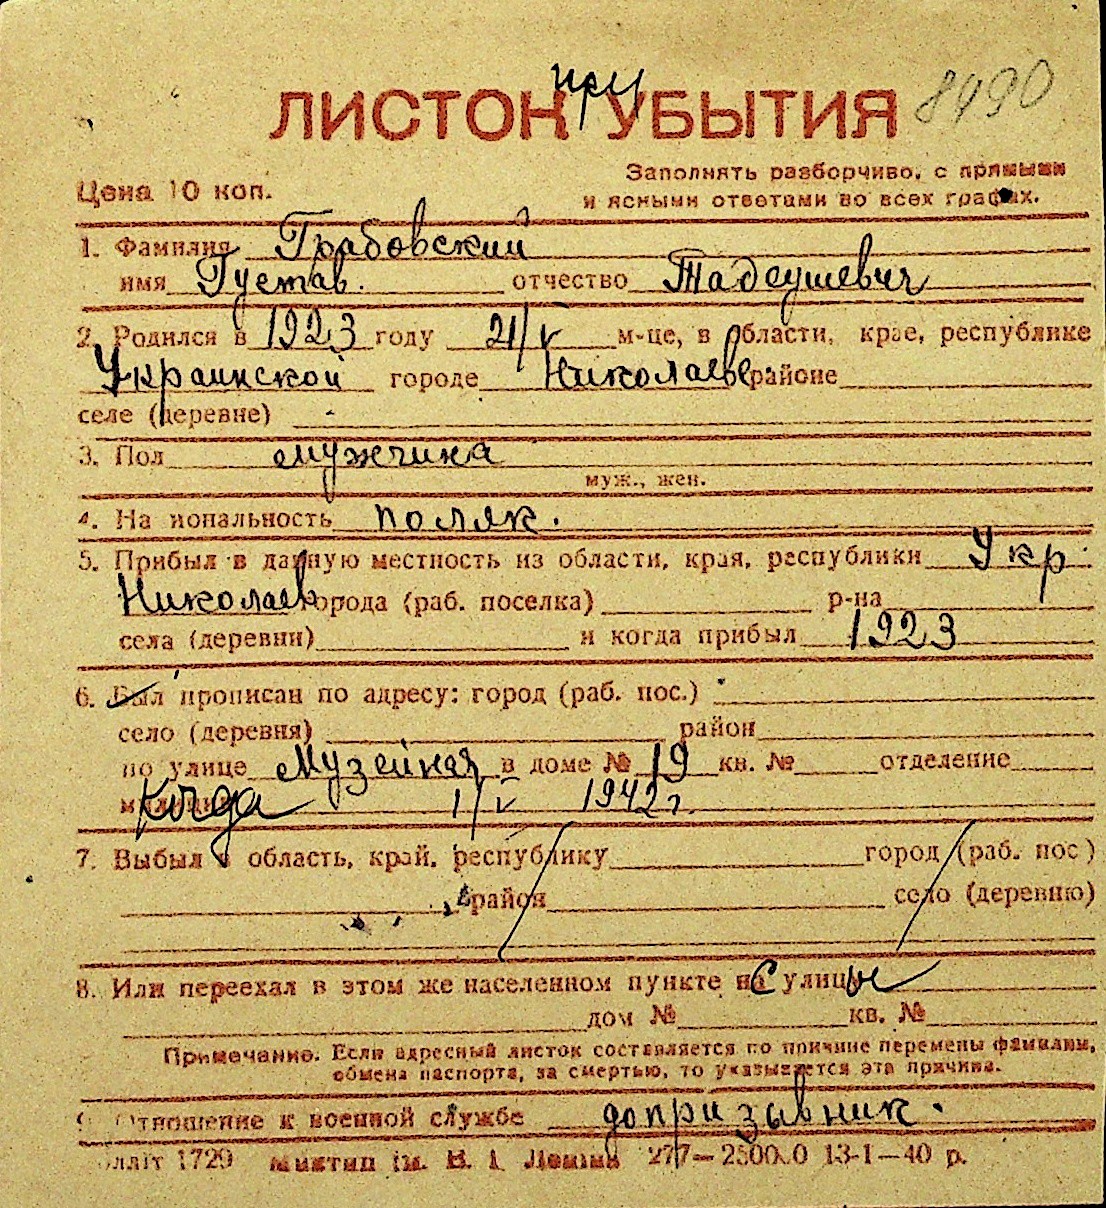 ЛИСТОК при УБЫТИЯ 8490
Цена 10 коп.
Заполнять разборчиво, с прямыми
и ясными ответами во всех графах.
1. Фамилия Грабовский
имя Густав. отчество Тадеушевич
2. Родился в 1923 году 21/V м-це, в области, крае, республике
Украинской городе Николаеве районе
селе (деревне) -
3. Пол мужчина
муж., жен.
4. На иональность поляк.
5. Прибыл в данную местность из области, края, республики Укр.
Николаев города (раб. поселка) р-на
села (деревни) и когда прибыл 1923
6. Был прописан по адресу: город (раб. пос.)
село (деревня) район
по улице Музейная в доме № 19 кв. № отделение
милиции Когда 1/V 1942 г.
7. Выбыл в область, край, республику город (раб. пос)
район село (деревню)
8. Или переехал в этом же населенном пункте на с улицы
дом № кв. №
Примечание. Если адресный листок составляется по причине перемены фамилии,
обмена паспорта, за смертью, то указывается эта причина.
9. Отношение к военной службе допризывник.
олліт 1729 Миктип ім. В. І. Леніна 277— 13-1—40 р.